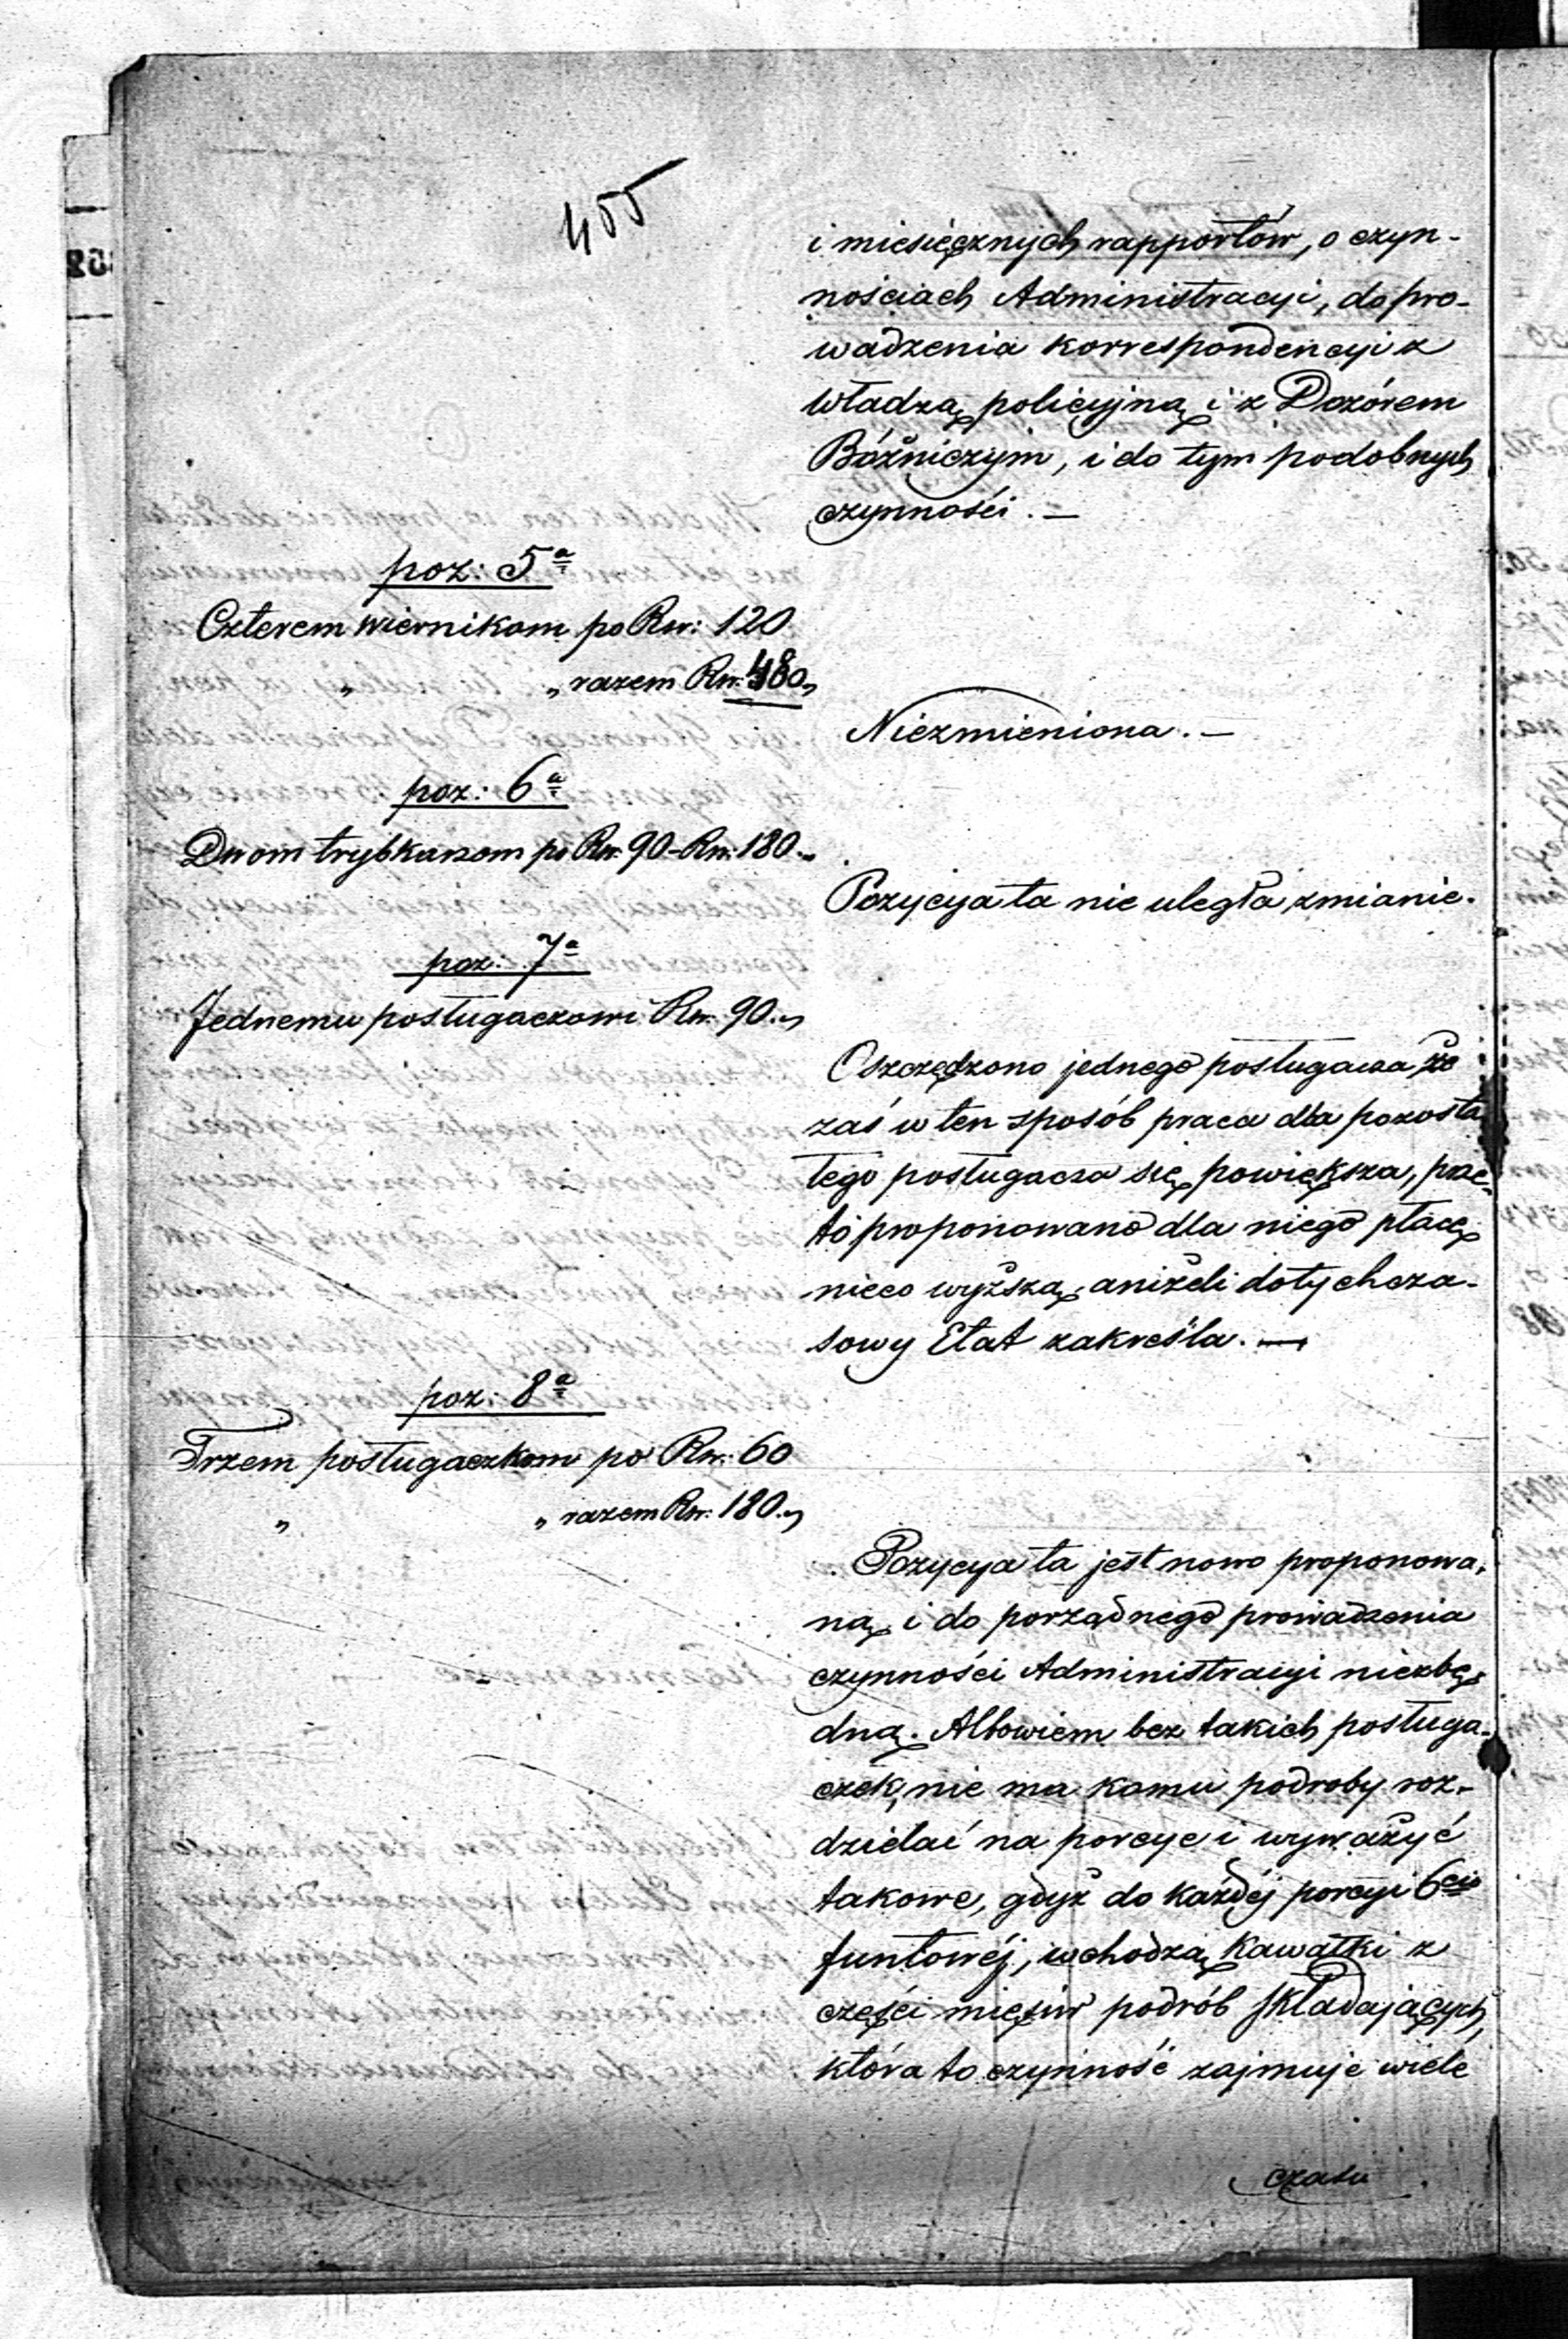 455
i miesięcznych rapportów, o czyn-
nościach Administracyi, do pro-
wadzenia korrespondencyi z
władzą policyjną i z Dozórem
Bóźniczym, i do tym podobnych
czynności. —
poz: 5ª
Czterem wiernikom po Rsr: 120
„ „ razem Rsr. 480 „
Niezmieniona. —
poz: 6ª
Dwom trybkarzom po Rsr. 90 - Rsr. 180 „
Pozycya ta nie uległa zmianie.
poz: 7ª
Jednemu posługaczowi Rsr. 90 „
Oszczędzono jednego posługacza, że
zaś w ten sposób praca dla pozosta
łego posługacza się powiększa, prze-
to proponowano dla niego płacę
nieco wyższą, aniżeli dotychcza-
sowy Etat zakreśla. —
poz: 8ª
Trzem posługaczkom po Rsr: 60
„ „ razem Rsr. 180 „
Pozycya ta jest nowo proponowa-
ną, i do porządnego prowadzenia
czynności Administracyi niezbę-
dną. Albowiem bez takich posługa-
czek, nie ma komu podroby roz-
dzielać na porcye i wyważyć
takowe, gdyż do każdéj porcyi 6cio
funtowéj, wchodzą kawałki z
części mięsiw podrób składających,
która to czynność zajmuje wiele
czasu